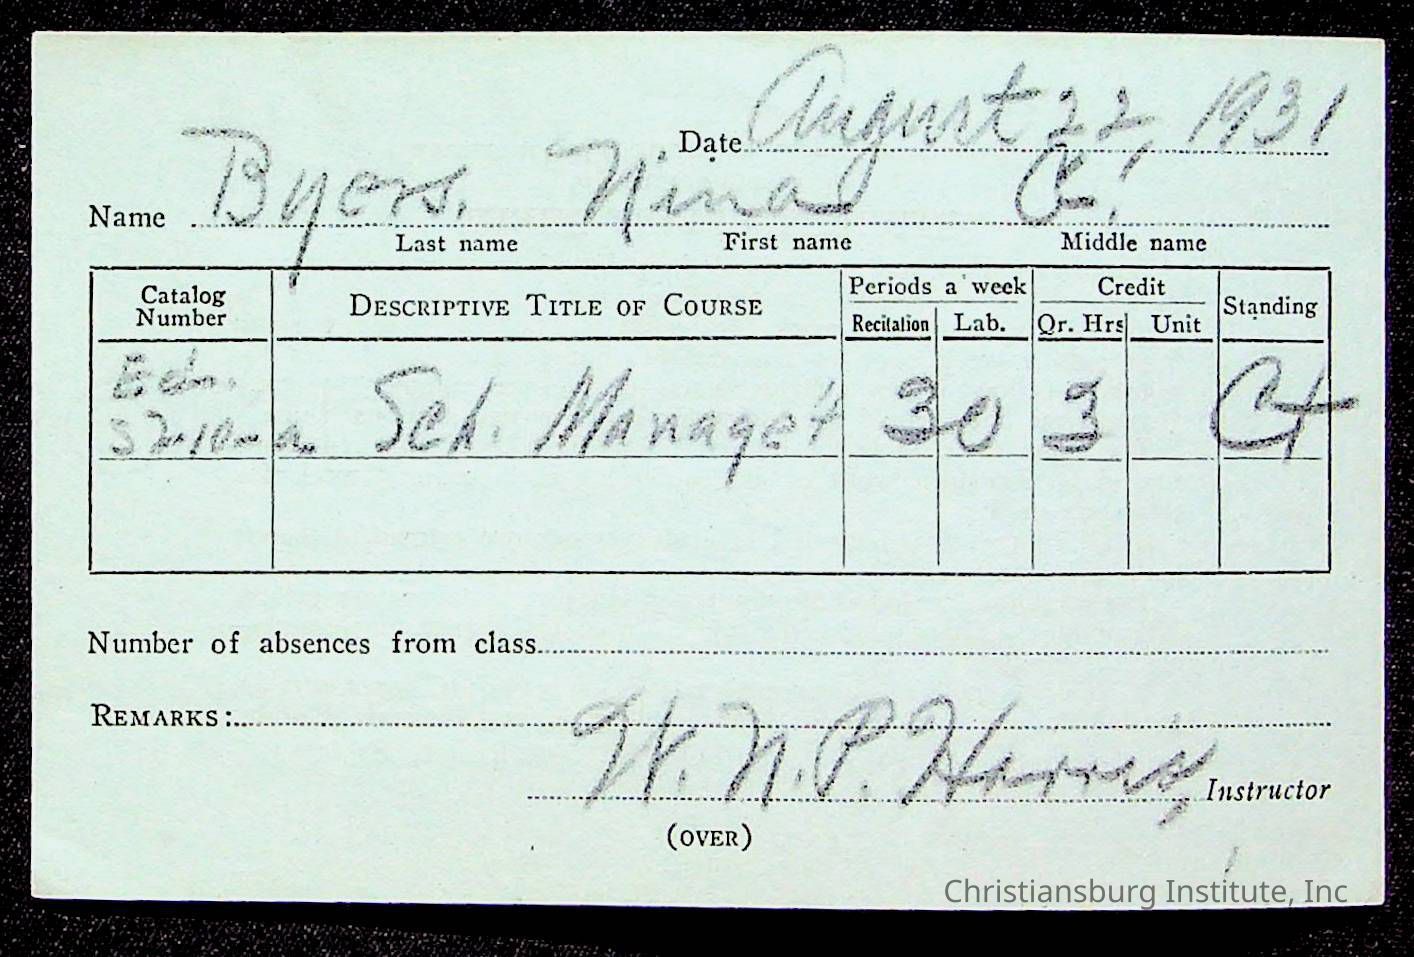 Date August 22, 1931
Name Byers. Nina C.
Last name First name Middle name
Catalog Number DESCRIPTIVE TITLE OF COURSE Periods a week Credit Standing
Recitation Lab. Qr. Hrs Unit
Edn.
a. Sch. Managet 3 0 3 C+
Number of absences from class
REMARKS:
W. N. P. Harris, Instructor
(OVER)
Christiansburg Institute, Inc